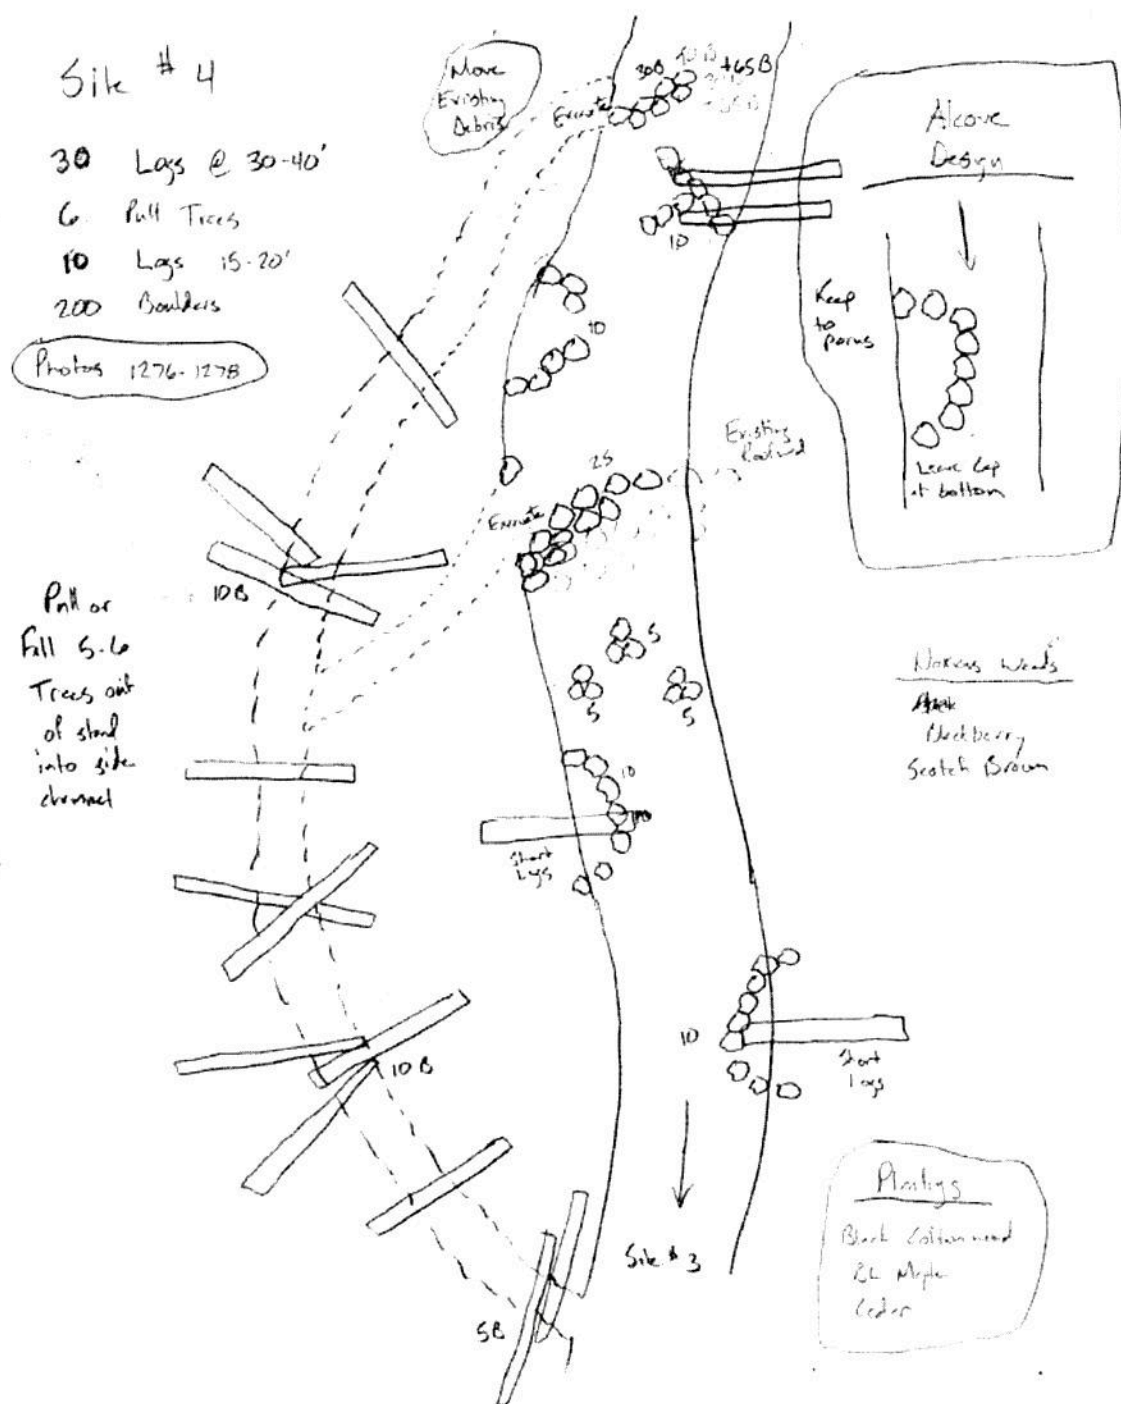 Site # 4
30 Logs @ 30-40'
6 Pull Trees
10 Logs 15-20'
200 Boulders
Photos 1276-1278
Move
Existing
Debris
Excavate
30B
+65B
10
Alcove
Design
Keep
to
porus
Leave Gap
at bottom
10
25
Existing
Excavate
10B
Pull or
Fall 5-6
Trees out
of stand
into side
channel
5
5
5
10
Short
Logs
Noxious Weeds
Blackberry
Scotch Broum
10B
10
Short
Logs
Site # 3
5B
Plantings
Black Cottonwood
BL Maple
Ceder